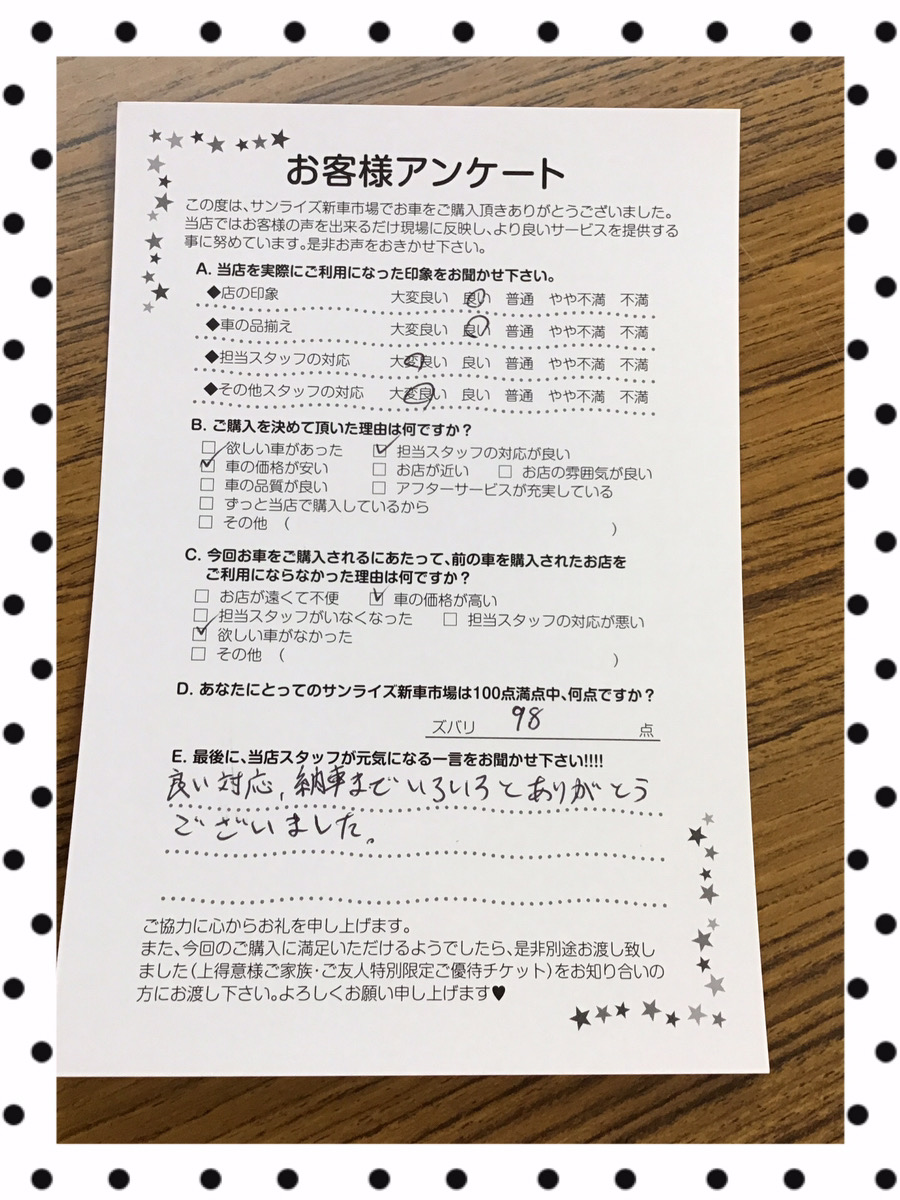 お客様アンケート
この度は、サンライズ新車市場でお車をご購入頂きありがとうございました。
当店ではお客様の声を出来るだけ現場に反映し、より良いサービスを提供する
事に努めています。是非お声をおきかせ下さい。
A. 当店を実際にご利用になった印象をお聞かせ下さい。
◆店の印象 大変良い 良い 普通 やや不満 不満
◆車の品揃え 大変良い 良い 普通 やや不満 不満
◆担当スタッフの対応 大変良い 良い 普通 やや不満 不満
◆その他スタッフの対応 大変良い 良い 普通 やや不満 不満
B. ご購入を決めて頂いた理由は何ですか？
□ 欲しい車があった ☑ 担当スタッフの対応が良い
☑ 車の価格が安い □ お店が近い □ お店の雰囲気が良い
□ 車の品質が良い □ アフターサービスが充実している
□ ずっと当店で購入しているから
□ その他 （ ）
C. 今回お車をご購入されるにあたって、前の車を購入されたお店を
ご利用にならなかった理由は何ですか？
□ お店が遠くて不便 ☑ 車の価格が高い
□ 担当スタッフがいなくなった □ 担当スタッフの対応が悪い
☑ 欲しい車がなかった
□ その他 （ ）
D. あなたにとってのサンライズ新車市場は100点満点中、何点ですか？
ズバリ 98 点
E. 最後に、当店スタッフが元気になる一言をお聞かせ下さい!!!!
良い対応、納車までいろいろとありがとう
ございました。
ご協力に心からお礼を申し上げます。
また、今回のご購入に満足いただけるようでしたら、是非別途お渡し致し
ました（上得意様ご家族・ご友人特別限定ご優待チケット）をお知り合いの
方にお渡し下さい。よろしくお願い申し上げます♥